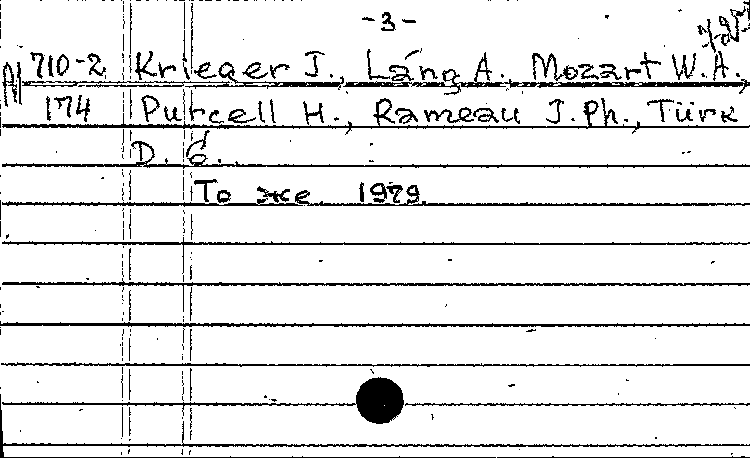 -3-
М 710-2 Krieger J., Láng A., Mozart W. A.,
174 Purcell H., Rameau J. Ph., Türk
D. G.
То же 1979.